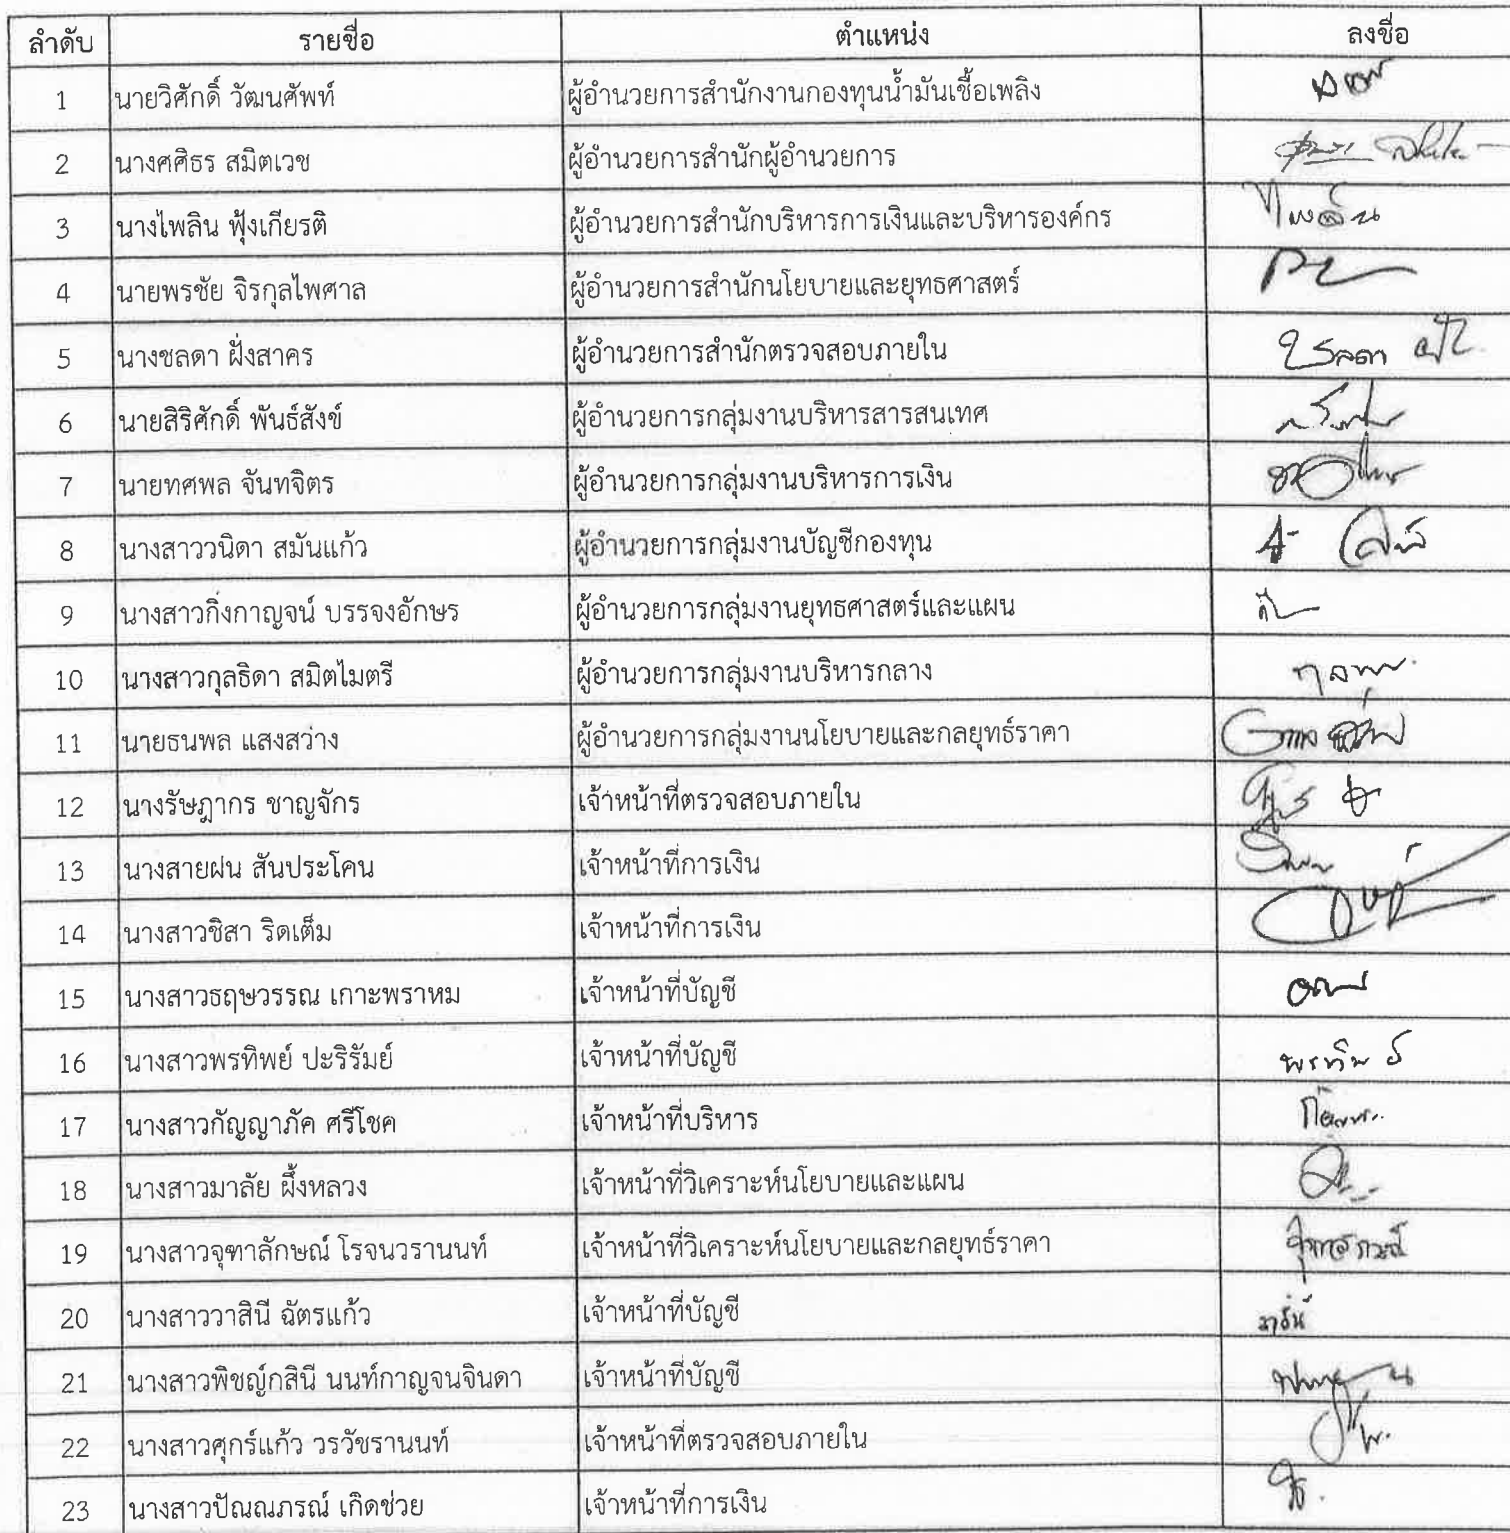 ลำดับ รายชื่อ ตำแหน่ง ลงชื่อ
1 นายวิศักดิ์ วัฒนศัพท์ ผู้อำนวยการสำนักงานกองทุนน้ำมันเชื้อเพลิง
2 นางศศิธร สมิตเวช ผู้อำนวยการสำนักผู้อำนวยการ
3 นางไพลิน ฟุ้งเกียรติ ผู้อำนวยการสำนักบริหารการเงินและบริหารองค์กร ไพลิน
4 นายพรชัย จิรกุลไพศาล ผู้อำนวยการสำนักนโยบายและยุทธศาสตร์
5 นางชลดา ฝั่งสาคร ผู้อำนวยการสำนักตรวจสอบภายใน
6 นายสิริศักดิ์ พันธ์สังข์ ผู้อำนวยการกลุ่มงานบริหารสารสนเทศ
7 นายทศพล จันทจิตร ผู้อำนวยการกลุ่มงานบริหารการเงิน
8 นางสาววนิดา สมันแก้ว ผู้อำนวยการกลุ่มงานบัญชีกองทุน
9 นางสาวกิ่งกาญจน์ บรรจงอักษร ผู้อำนวยการกลุ่มงานยุทธศาสตร์และแผน
10 นางสาวกุลธิดา สมิตไมตรี ผู้อำนวยการกลุ่มงานบริหารกลาง
11 นายธนพล แสงสว่าง ผู้อำนวยการกลุ่มงานนโยบายและกลยุทธ์ราคา
12 นางรัษฎากร ชาญจักร เจ้าหน้าที่ตรวจสอบภายใน
13 นางสายฝน สันประโคน เจ้าหน้าที่การเงิน
14 นางสาวชิสา ริดเต็ม เจ้าหน้าที่การเงิน
15 นางสาวธฤษวรรณ เกาะพราหม เจ้าหน้าที่บัญชี
16 นางสาวพรทิพย์ ปะริรัมย์ เจ้าหน้าที่บัญชี
17 นางสาวกัญญาภัค ศรีโชค เจ้าหน้าที่บริหาร
18 นางสาวมาลัย ผึ้งหลวง เจ้าหน้าที่วิเคราะห์นโยบายและแผน
19 นางสาวจุฑาลักษณ์ โรจนวรานนท์ เจ้าหน้าที่วิเคราะห์นโยบายและกลยุทธ์ราคา
20 นางสาววาสินี ฉัตรแก้ว เจ้าหน้าที่บัญชี
21 นางสาวพิชญ์กสินี นนท์กาญจนจินดา เจ้าหน้าที่บัญชี
22 นางสาวศุกร์แก้ว วรวัชรานนท์ เจ้าหน้าที่ตรวจสอบภายใน
23 นางสาวปัณณภรณ์ เกิดช่วย เจ้าหน้าที่การเงิน